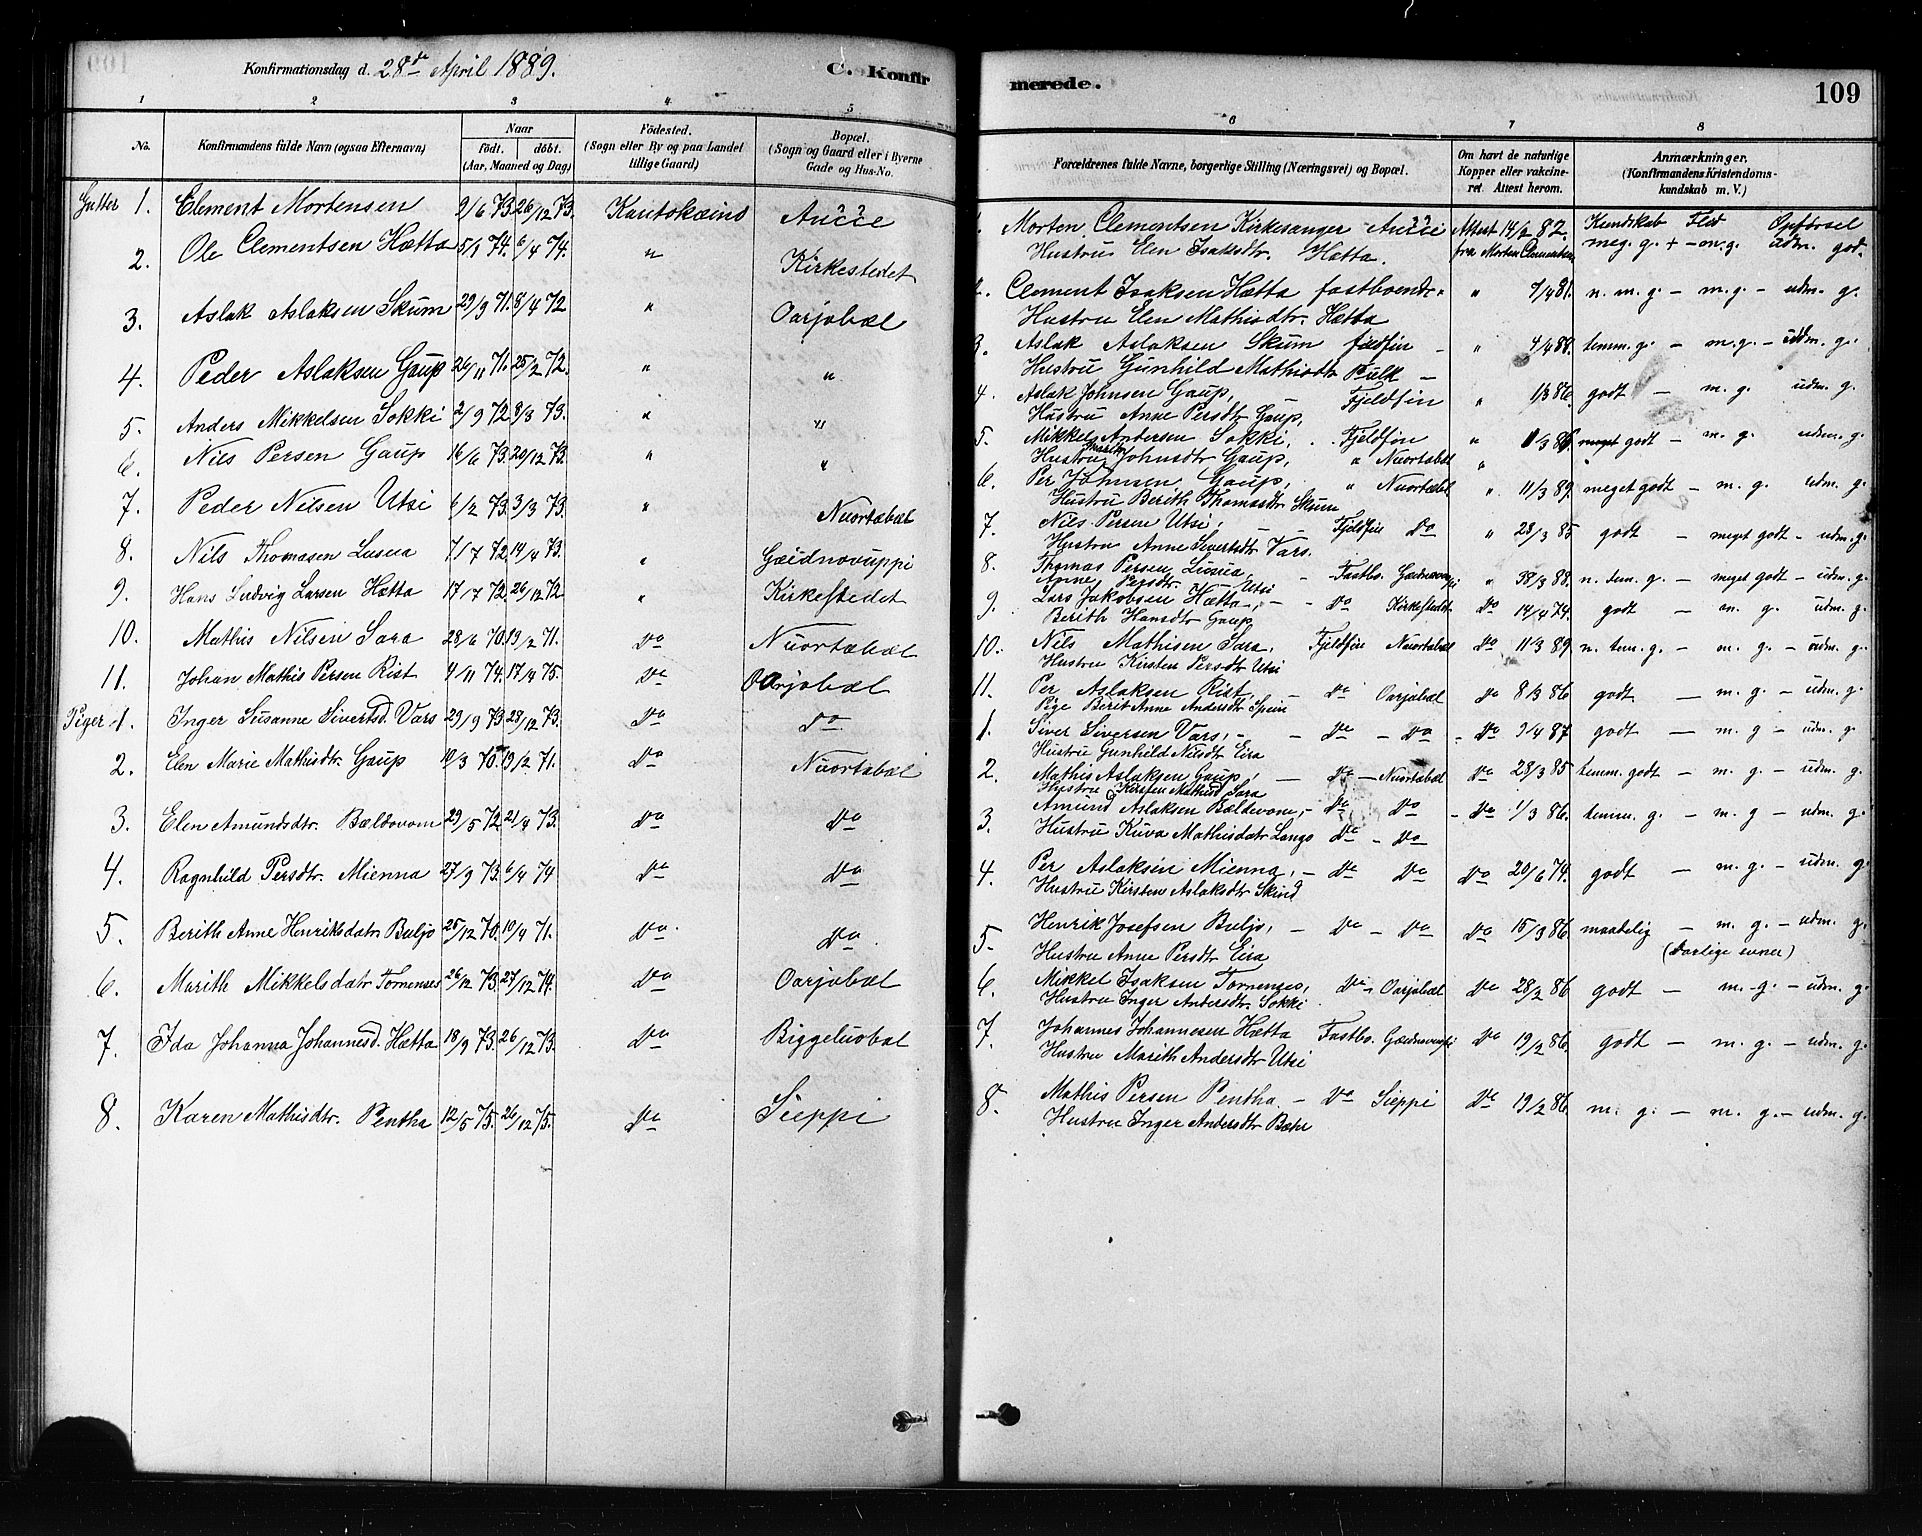 Konfirmationsdag d. 28de April 1889. C. Konfir
1 2 3 4 5
No. Konfirmandens fulde Navn (ogsaa Efternavn) Naar Födested. Bopæl.
födt. döbt. (Sogn eller By og paa Landet (Sogn og Gaard eller i Byerne
(Aar, Maaned og Dag) tillige Gaard) Gade og Hus-No.
Gutter 1. Clement Mortensen 9/6 73 26/12 73. Kautokeino
2. Ole Clementsen Hætta 5/1 74. 6/4 74. " Kirkestedet
3. Aslak Aslaksen Skum 29/9 71. 8/4 72 " Oarjobæl
4. Peder Aslaksen Gaup 26/11 71. 25/2 72. " "
5. Anders Mikkelsen Sokki 2/9 72. 8/3 73. " "
6. Nils Persen Gaup 16/6 73. 20/12 73. " "
7. Peder Nilsen Utsi 6/2 73. 3/3 73. " Nuortabæl
8. Nils Thomasen Lusua 7/7 72. 14/4 73. " Gæidnovuppi
9. Hans Ludvig Larsen Hætta 17/7 72. 26/12 72 " Kirkestedet
10. Mathis Nilsen Sara 28/6 70. 19/2 71. Do Nuortabæl
11. Johan Mathis Persen Rist 4/11 74. 17/4 75. Do Oarjobæl
Piger 1. Inger Susanne Sivertsd. Vars 29/9 73 28/12 73. Do Do
2. Elen Marie Mathisdtr. Gaup 10/3 70. 19/2 71. Do Nuortabæl
3. Elen Amundsdtr. Bældovom 29/5 72. 21/4 73. Do Do
4. Ragnhild Persdtr. Mienna 27/9 73. 6/4 74 Do Do
5. Berith Anne Henriksdatr Buljo 25/12 70. 10/4 71. Do. Do.
6. Marith Mikkelsdatr Tornenses 26/12 73. 27/12 74. Do Oarjobæl
7. Ida Johanna Johannesd. Hætta 18/9 73. 26/12 73. Do Biggeluobal
8. Karen Mathisdtr. Pentha 12/5 75. 26/12 75. Do Sieppi
merede. 109
6 7 8
Forældrenes fulde Navne, borgerlige Stilling (Næringsvei) og Bopæl. Om havt de naturlige Anmærkninger.
Kopper eller vakcine- (Konfirmandens Kristendoms-
ret. Attest herom. kundskab m. V.)
1. Morten Clementsen Kirkesanger Attest 14/2 82. Kundskab Flid Opförsel
Hustru Elen Isaksdtr. Hætta. fra Morten Clementsen. meg. g. + - m. g. udm. god.
2. Clement Isaksen Hætta fastboende " 9/4 81. n. m. g. - m. g. - udm. g.
Hustru Elen Mathisdtr. Hætta
3. Aslak Aslaksen Skum fjeldfin - " 4/4 88. temm. g. - m. g. - udm. g.
Hustru Gunhild Mathisdtr Pulk -
4. Aslak Johnsen Gaup, Fjeldfin " 1/3 86. godt - m. g. udm. g.
Hustru Anne Persdtr Gaup,
5. Mikkel Andersen Sokki, Fjeldfin " 11/3 86. meget godt - m. g. udm. g.
Hustru Johnsdtr Gaup, " Nuortabæl "
6. Per Johnsen Gaup, " Nuortabæl " 11/3 89. meget godt - m. g. udm. g.
Hustru Berith Thomasdtr Skum
7. Nils Persen Utsi, - Fjeldfin Do " 28/3 85 godt - meget godt - udm. g.
Hustru Anne Sivertsdtr Vars.
8. Thomas Persen Lusua, - Fastbo. " /3 88. n. tem. g. - meget godt - udm. g.
Anne Persdtr. Utsi
9. Lars Jakobsen Hætta, - Do Kirkestedet Do 14/4 74. godt - m. g. udm. g.
Berith Hansdtr Gaup
10. Nils Mathisen Sara, Fjeldfin Nuortabæl Do 11/3 89. n. tem. g. - m. g. - udm. g.
Hustru Kirsten Persdtr Utsi
11. Per Aslaksen Rist, - Do Oarjobæl Do 8/3 86 godt. - m. g. - udm. g.
Pige Berit Anne Andersdtr Spein
1. Siver Siversen Vars, - - Do - Do - Do 9/4 87 godt - m. g - udm. g.
Hustru Gunhild Nilsdtr Eira
2. Mathis Aslaksen Gaup, - Do - Nuortabæl Do 28/3 85 temm. godt - m. g. - udm. g.
Hustru Kirsten Mathisd Sara
3. Amund Aslaksen Bældovom, - Do Do - Do 1/3 86. temm. g. - m. g - udm. g.
Hustru Kuva Mathisdatr Lango Do - Do
4. Per Aslaksen Mienna, - Do Do Do 20/6 74. godt - m. g. - udm. g.
Hustru Kirsten Aslaksdtr Skind
5. Henrik Josefsen Buljo, - Do - Do Do 15/3 86 maadelig - m. g. - udm. g.
Hustru Anne Persdtr Eira (Daarlige evner)
6. Mikkel Isaksen Tornenses, Do - Oarjobæl Do 28/2 86 godt - m. g. - udm. g.
Hustru Inger Andersdtr. Sokki.
7. Johannes Johannesen Hætta Fastbo. Do 19/2 86. godt - m. g. - udm. g.
Hustru Marith Andersdtr Utsi
8. Mathis Persen Pentha - Do Sieppi Do 19/2 86. m. g. - m. g. - udm. g.
Hustru Inger Andersdtr Bæhr